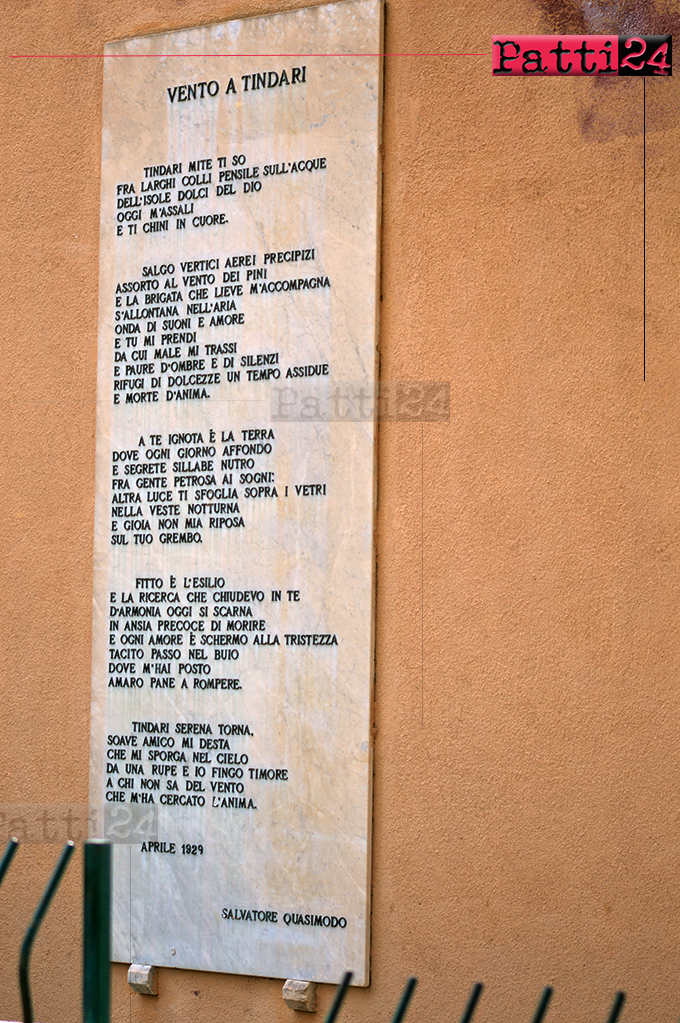 Patti24
VENTO A TINDARI
TINDARI MITE TI SO
FRA LARGHI COLLI PENSILE SULL'ACQUE
DELL'ISOLE DOLCI DEL DIO
OGGI M'ASSALI
E TI CHINI IN CUORE.
SALGO VERTICI AEREI PRECIPIZI
ASSORTO AL VENTO DEI PINI
E LA BRIGATA CHE LIEVE M'ACCOMPAGNA
S'ALLONTANA NELL'ARIA
ONDA DI SUONI E AMORE
E TU MI PRENDI
DA CUI MALE MI TRASSI
E PAURE D'OMBRE E DI SILENZI
RIFUGI DI DOLCEZZE UN TEMPO ASSIDUE
E MORTE D'ANIMA.
Patti24
A TE IGNOTA È LA TERRA
DOVE OGNI GIORNO AFFONDO
E SEGRETE SILLABE NUTRO
FRA GENTE PETROSA AI SOGNI:
ALTRA LUCE TI SFOGLIA SOPRA I VETRI
NELLA VESTE NOTTURNA
E GIOIA NON MIA RIPOSA
SUL TUO GREMBO.
FITTO È L'ESILIO
E LA RICERCA CHE CHIUDEVO IN TE
D'ARMONIA OGGI SI SCARNA
IN ANSIA PRECOCE DI MORIRE
E OGNI AMORE È SCHERMO ALLA TRISTEZZA
TACITO PASSO NEL BUIO
DOVE M'HAI POSTO
AMARO PANE A ROMPERE.
TINDARI SERENA TORNA,
SOAVE AMICO MI DESTA
CHE MI SPORGA NEL CIELO
DA UNA RUPE E IO FINGO TIMORE
A CHI NON SA DEL VENTO
CHE M'HA CERCATO L'ANIMA.
Patti24
APRILE 1929
SALVATORE QUASIMODO